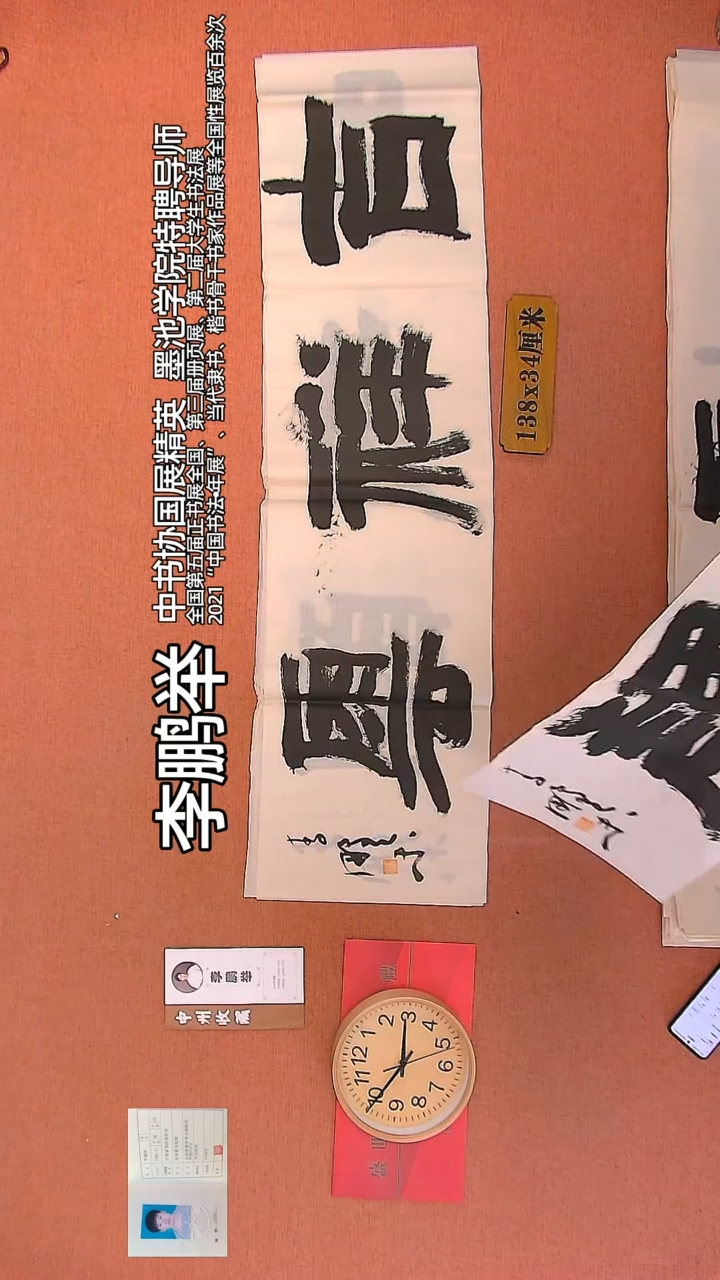 李鹏举
中书协国展精英 墨池学院特聘导师
全国第五届正书展全国、第三届册页展、第二届大学生书法展
2021“中国书法•年展”、当代隶书、楷书骨干书家作品展等全国性展览百余次
吉祥雲
138x34厘米
李鹏举
中州收藏
12
1
2
3
4
5
6
7
8
9
10
11